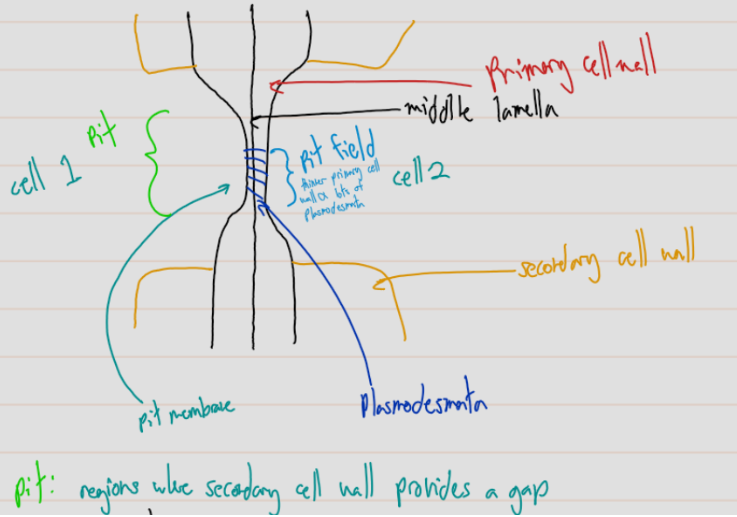 Primary cell wall
middle lamella
pit
pit field
thinner primary cell
wall & lots of
plasmodesmata
cell 1
cell 2
secondary cell wall
pit membrane
Plasmodesmata
pit: regions where secondary cell wall provides a gap